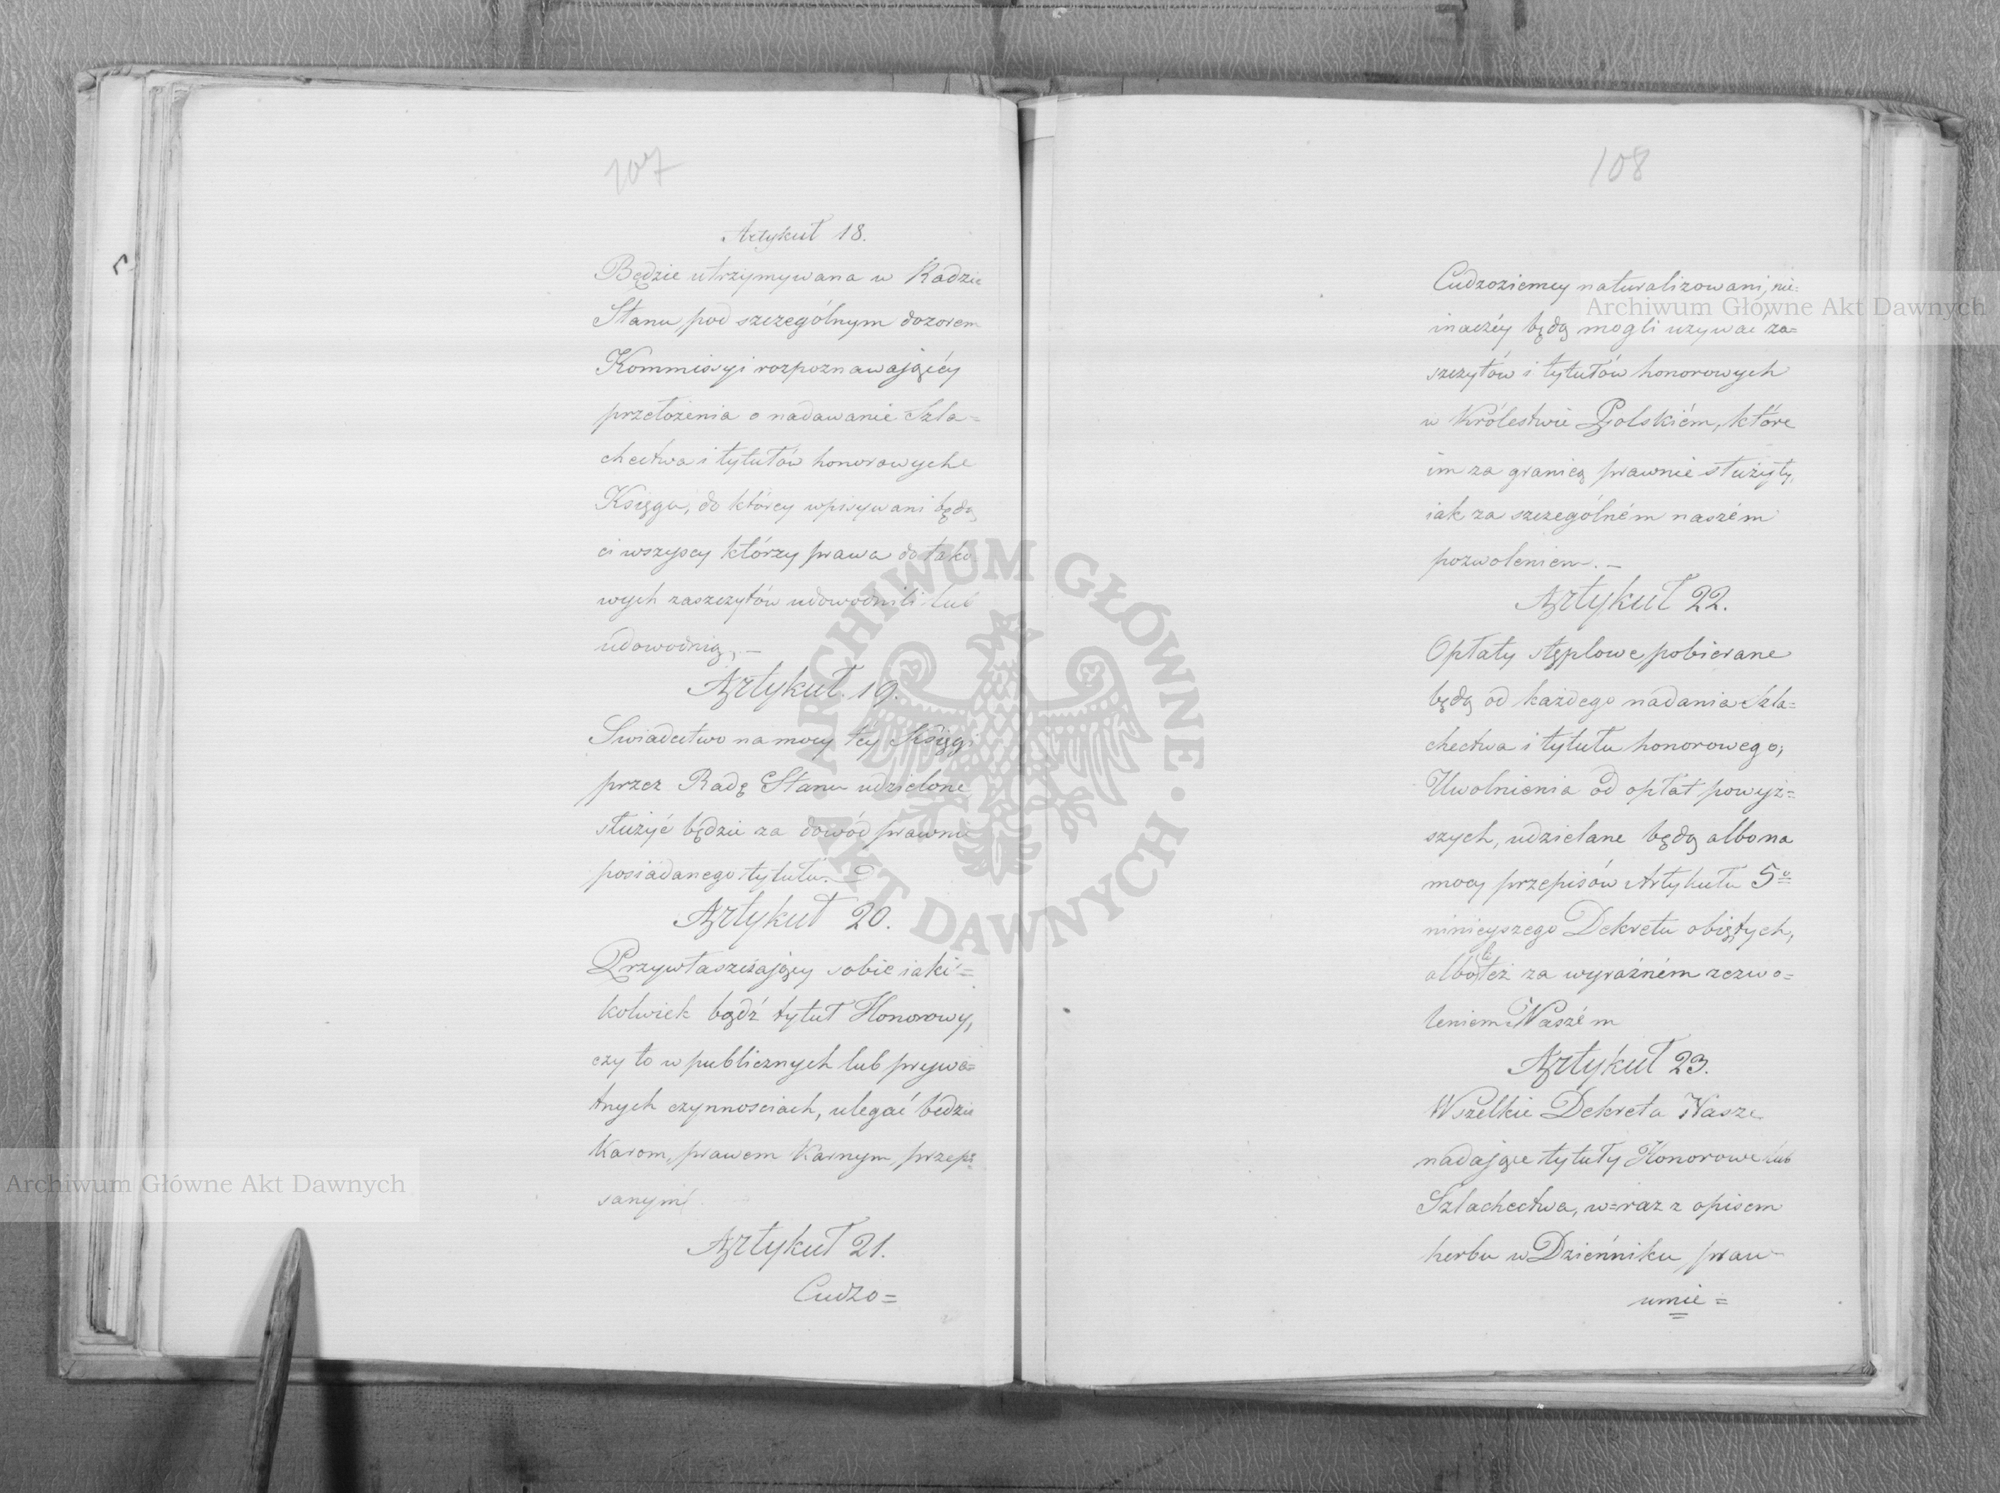 107
Artykuł 18.
Będzie utrzymywana w Radzie
Stanu pod szczególnym dozorem
Kommissyi rozpoznawaiącéy
przełożenia o nadawanie Szla=
chectwa i tytułów honorowych
Księga, do któréy wpisywani będą
ci wszyscy którzy prawa do tako
wych zaszczytów udowodnili lub
udowodnią, —
Artykuł. 19.
Swiadectwo na mocy téy Księgi
przez Radę Stanu udzielone
służyć będzie za dowód prawnie
posiadanego tytułu.
Artykuł 20.
Przywłaszczaiący sobie iaki=
kolwiek bądź tytuł Honorowy,
czy to w publicznych lub prywa=
tnych czynnosciach, ulegać będzie
Karom, prawem Karnym przepi=
sanym
Artykuł 21.
Cudzo=
108
Cudzoziemcy naturalizowani, nie=
inaczéy będą mogli używać za=
szczytów i tytułów honorowych
w Królestwie Polskiém, które
im za granicą prawnie służyły,
iak za szczególném naszém
pozwoleniem. —
Artykuł 22.
Opłaty stęplowe, pobierane
będą od każdego nadania Szla=
chectwa i tytułu honorowego;
Uwolnienia od opłat powyż=
szych, udzielane będą albo na
mocy przepisów Artykułu 5º
ninieyszego Dekretu obiętych,
albo też za wyraźném zezwo=
leniem Naszém
Artykuł 23.
Wszelkie Dekreta Nasze
nadaiące tytuły Honorowe lub
Szlachectwa, w=raz z opisem
herbu w Dzienniku praw
umie=
Archiwum Główne Akt Dawnych
Archiwum Główne Akt Dawnych
ARCHIWUM GŁÓWNE · AKT DAWNYCH ·